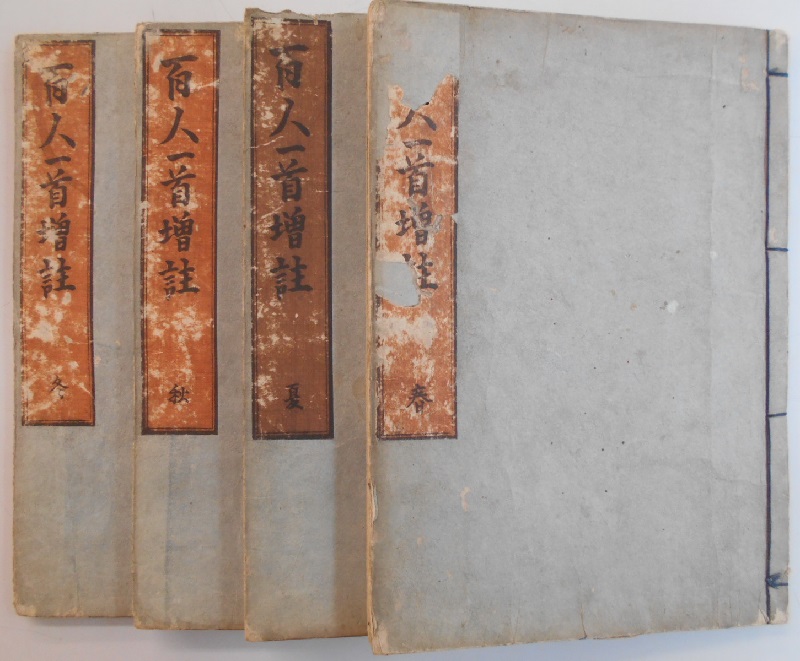 人一首増註
春
百人一首増註
夏
百人一首増註
秋
百人一首増註
冬